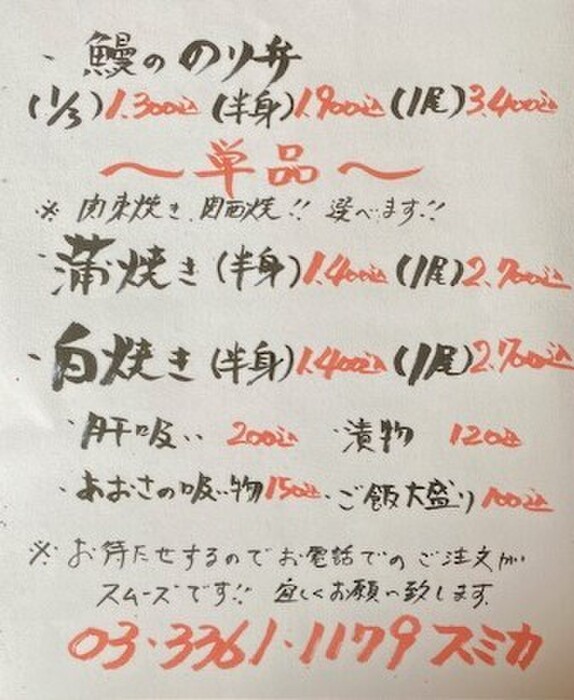 ・鰻ののり弁
(1/3)1.300込 (半身)1.900込 (1尾)3.400込
〜単品〜
※ 関東焼き、関西焼!! 選べます!!
・蒲焼き(半身)1.400込 (1尾)2.700込
・白焼き(半身)1.400込 (1尾)2.700込
・肝吸い 200込 ・漬物 120込
・あおさの吸い物150込 ・ご飯大盛り100込
※ お待たせするのでお電話でのご注文が
スムーズです!! 宜しくお願い致します。
03・3361・1179 スミカ